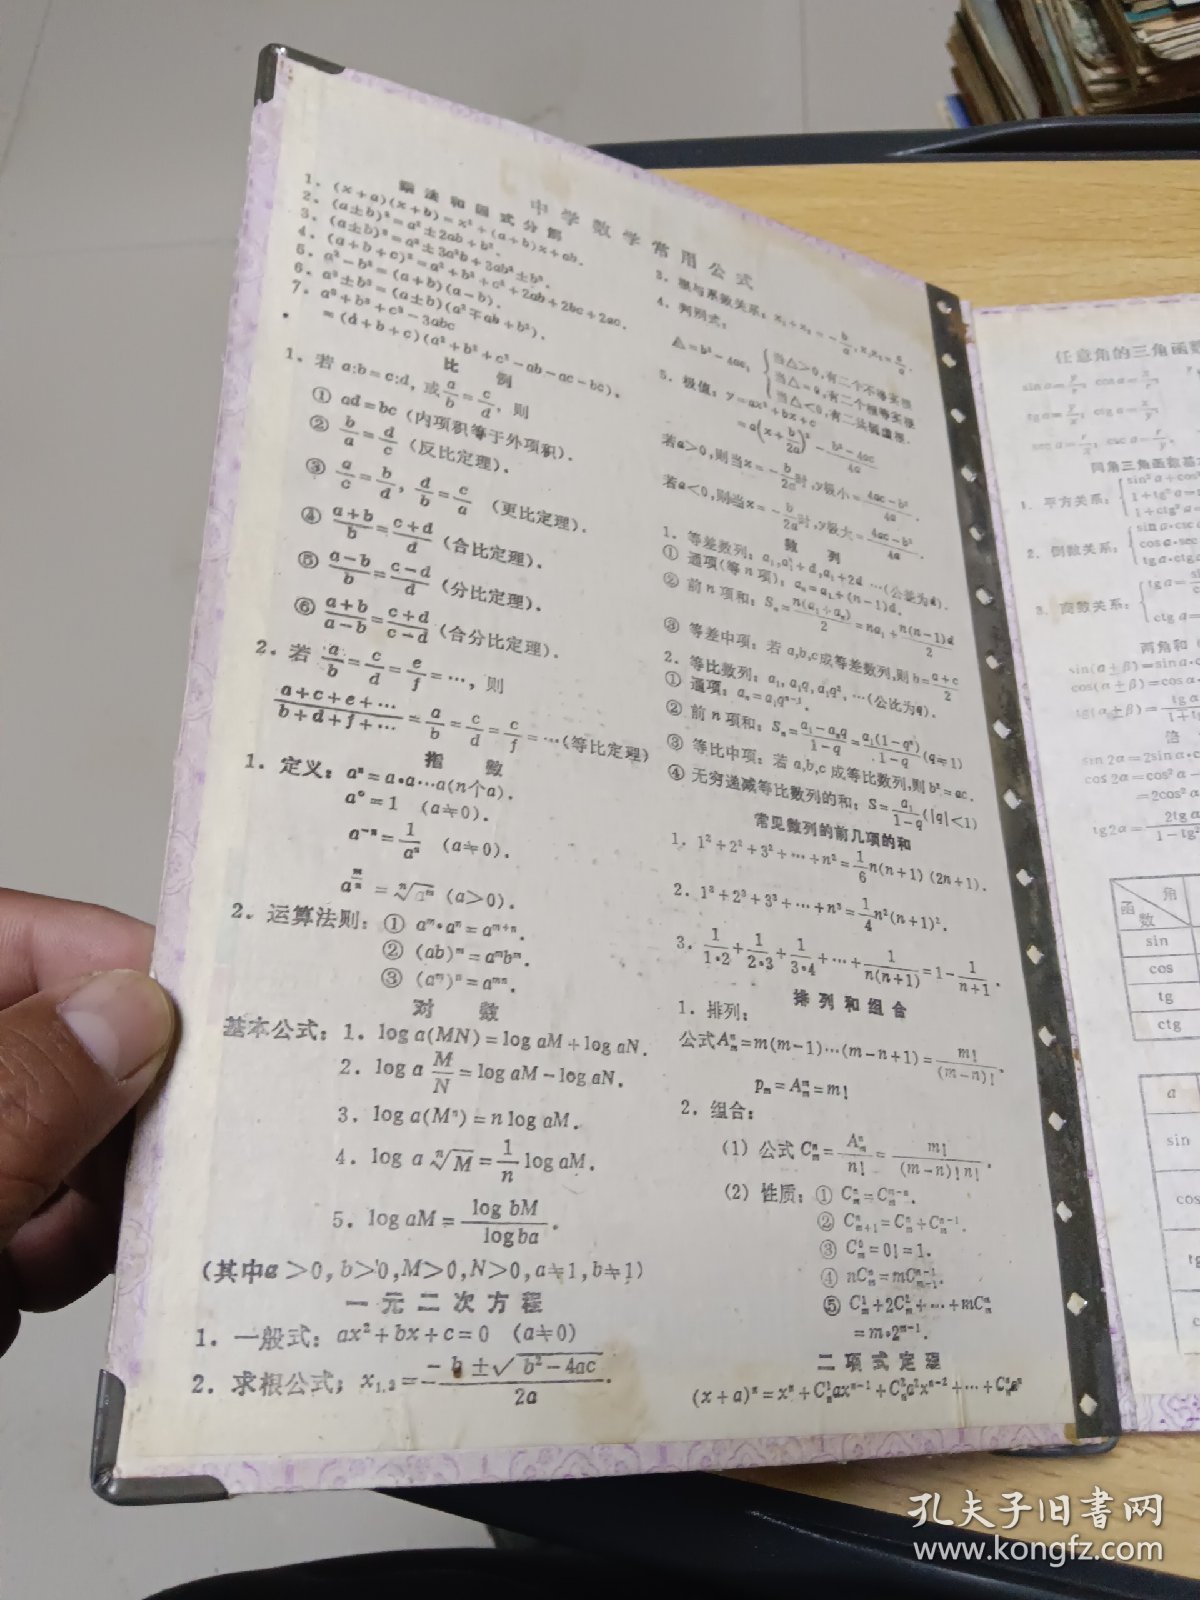 中学数学常用公式
乘法和因式分解
1. (x+a)(x+b)=x²+(a+b)x+ab.
2. (a±b)²=a²±2ab+b².
3. (a±b)³=a³±3a²b+3ab²±b³.
4. (a+b+c)²=a²+b²+c²+2ab+2bc+2ac.
5. a²-b²=(a+b)(a-b).
6. a³±b³=(a±b)(a²∓ab+b²).
7. a³+b³+c³-3abc
=(d+b+c)(a²+b²+c²-ab-ac-bc).
比 例
1. 若 a:b=c:d, 或 a/b=c/d, 则
① ad=bc (内项积等于外项积).
② b/a=d/c (反比定理).
③ a/c=b/d, d/b=c/a (更比定理).
④ (a+b)/b=(c+d)/d (合比定理).
⑤ (a-b)/b=(c-d)/d (分比定理).
⑥ (a+b)/(a-b)=(c+d)/(c-d) (合分比定理).
2. 若 a/b=c/d=e/f=…, 则
(a+c+e+…)/(b+d+f+…)=a/b=c/d=c/f=…(等比定理)
指 数
1. 定义: aⁿ=a•a…a(n个a).
a°=1 (a≠0).
a⁻ⁿ=1/aⁿ (a≠0).
2. 运算法则: ① aᵐ•aⁿ=aᵐ⁺ⁿ.
② (ab)ᵐ=aᵐbᵐ.
③ (aᵐ)ⁿ=aᵐⁿ.
对 数
基本公式: 1. log a(MN)=log aM+log aN.
2. log a M/N=log aM-log aN.
3. log a(Mⁿ)=n log aM.
4. log a ⁿ√M=1/n log aM.
5. log aM=log bM/log ba.
(其中a>0,b>0,M>0,N>0,a≠1,b≠1)
一元二次方程
1. 一般式: ax²+bx+c=0 (a≠0)
2. 求根公式; x₁.₂=-b±√(b²-4ac)/2a.
3. 根与系数关系: x₁+x₂=-b/a, x₁x₂=c/a.
4. 判别式:
△=b²-4ac,
当△>0,有二个不等实根
当△=0,有二个相等实根
当△<0,有二共轭虚根.
5. 极值: y=ax²+bx+c
=a(x+b/2a)²-(b²-4ac)/4a
若a>0,则当x=-b/2a时,y极小=(4ac-b²)/4a.
若a<0,则当x=-b/2a时,y极大=(4ac-b²)/4a.
数 列
1. 等差数列: a₁,a₁+d,a₁+2d …(公差为d).
① 通项(等n项): aₙ=a₁+(n-1)d.
② 前n项和: Sₙ=n(a₁+aₙ)/2=na₁+n(n-1)d/2
③ 等差中项: 若 a,b,c成等差数列,则 b=(a+c)/2
2. 等比数列: a₁,a₁q,a₁q²,…(公比为q).
① 通项: aₙ=a₁qⁿ⁻¹.
② 前n项和: Sₙ=(a₁-aₙq)/(1-q)=a₁(1-qⁿ)/(1-q)(q≠1)
③ 等比中项: 若 a,b,c 成等比数列,则 b²=ac.
④ 无穷递减等比数列的和: S=a₁/(1-q)(|q|<1)
常见数列的前几项的和
1. 1²+2²+3²+…+n²=1/6 n(n+1)(2n+1).
2. 1³+2³+3³+…+n³=1/4 n²(n+1)².
3. 1/1•2+1/2•3+1/3•4+…+1/n(n+1)=1-1/(n+1).
排列和组合
1. 排列:
公式Aₘⁿ=m(m-1)…(m-n+1)=m!/(m-n)!.
pₘ=Aₘᵐ=m!
2. 组合:
(1) 公式 Cₘⁿ=Aₘⁿ/n!=m!/(m-n)!n!.
(2) 性质: ① Cₘⁿ=Cₘᵐ⁻ⁿ.
② Cₘ₊₁ⁿ=Cₘⁿ+Cₘⁿ⁻¹.
③ Cₘ⁰=0!=1.
④ nCₘⁿ=mCₘ₋₁ⁿ⁻¹.
⑤ Cₘ¹+2Cₘ²+…+mCₘᵐ
=m•2ᵐ⁻¹.
二项式定理
(x+a)ⁿ=xⁿ+Cₙ¹axⁿ⁻¹+Cₙ²a²xⁿ⁻²+…+Cₙⁿaⁿ
任意角的三角函数
sin α=y/r; cos α=x/r;
tg α=y/x; ctg α=x/y;
sec α=r/x; csc α=r/y.
同角三角函数基本
1. 平方关系:
sin²α+cos²
1+tg²α=
1+ctg²α=
2. 倒数关系:
sin α•csc α
cos α•sec
tg α•ctg α
3. 商数关系:
tg α=
ctg α=
两角和
sin(α±β)=sin α•c
cos(α±β)=cos α•
tg(α±β)=tg α
1+tg
倍
sin 2α=2sin α•c
cos 2α=cos²α-
=2cos²α
tg 2α=2tg α/1-tg²
角
函数
sin
cos
tg
ctg
α
sin
cos
tg
孔夫子旧书网
www.kongfz.com